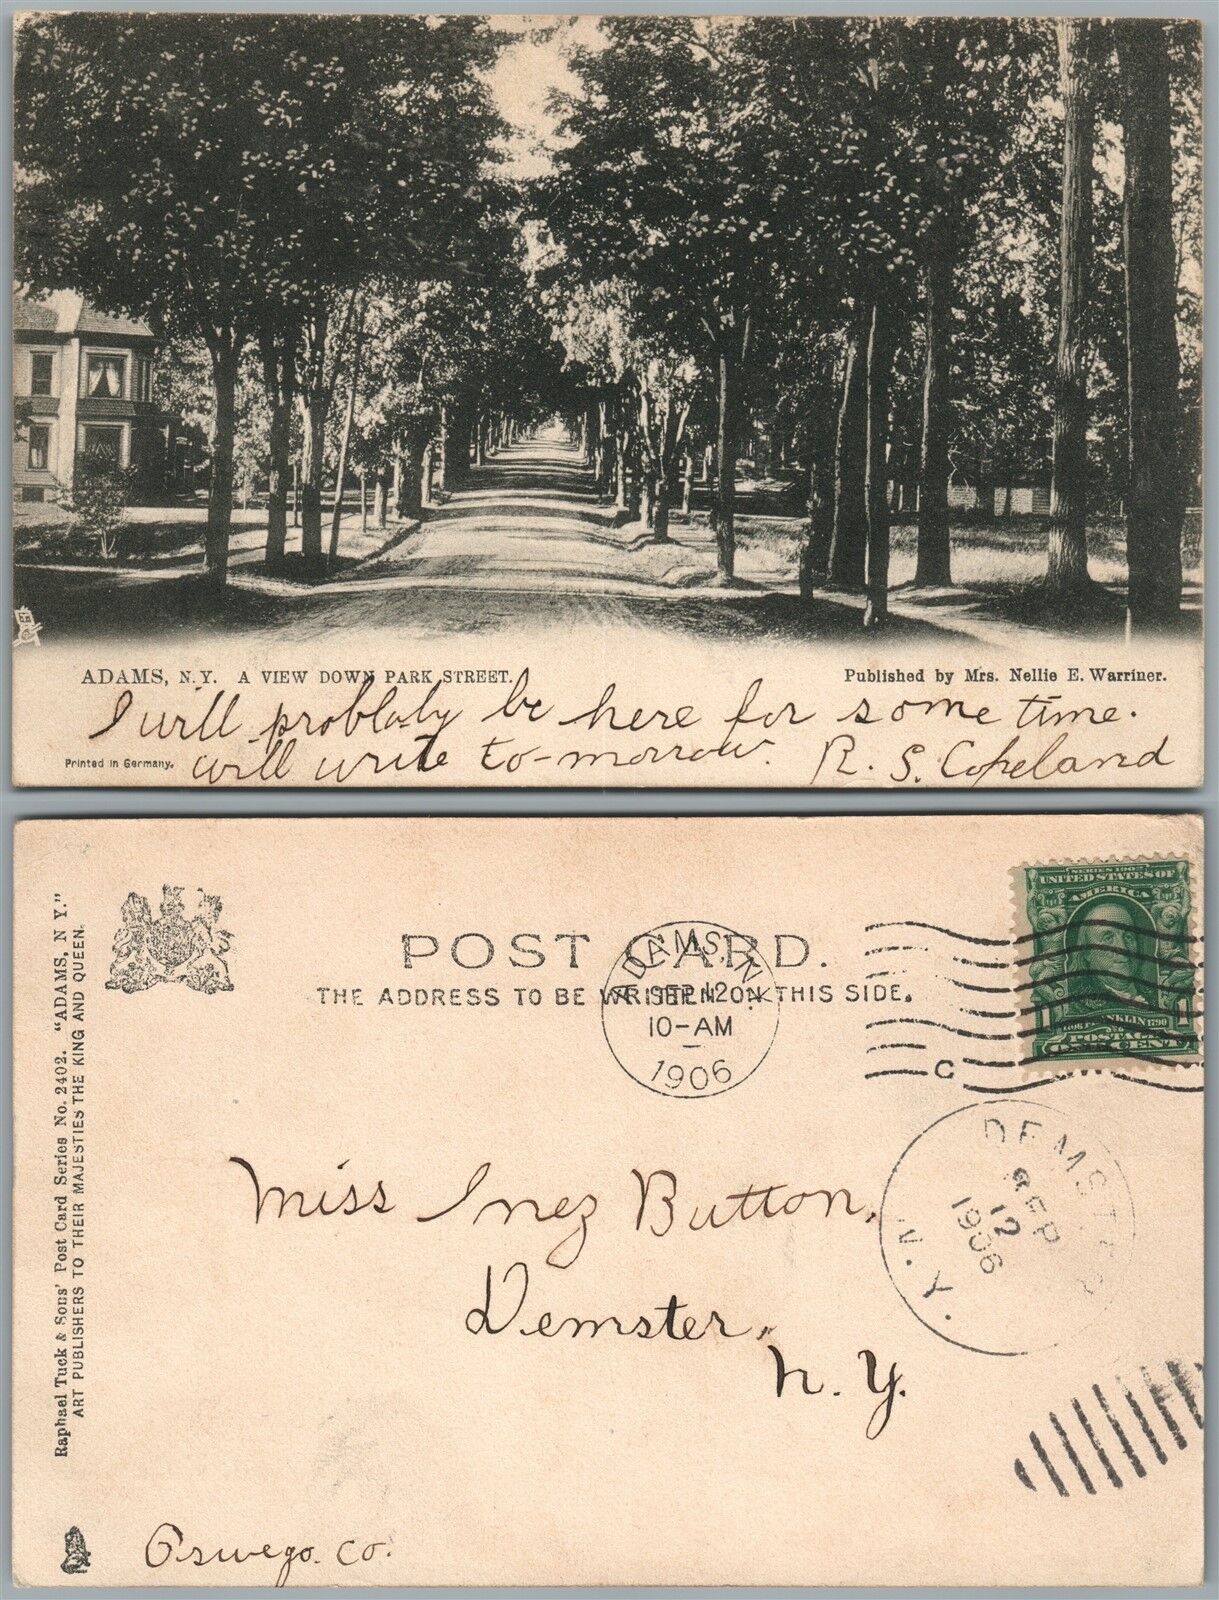 ADAMS, N.Y. A VIEW DOWN PARK STREET.
Published by Mrs. Nellie E. Warriner.
I will problaly be here for some time.
Printed in Germany.
will write to-morrow. R. S. Copeland
Raphael Tuck & Sons' Post Card Series No. 2402. "ADAMS, N Y."
ART PUBLISHERS TO THEIR MAJESTIES THE KING AND QUEEN.
POST CARD.
THE ADDRESS TO BE WRITTEN ON THIS SIDE.
ADAMS, N.Y.
SEP 12
10-AM
1906
C
SERIES 1902
UNITED STATES OF
AMERICA
1 1
FRANKLIN 1790
POSTAGE
ONE CENT
DEMSTER
SEP
12
1906
N.Y.
Miss Inez Button,
Demster,
N. Y.
Oswego. Co.